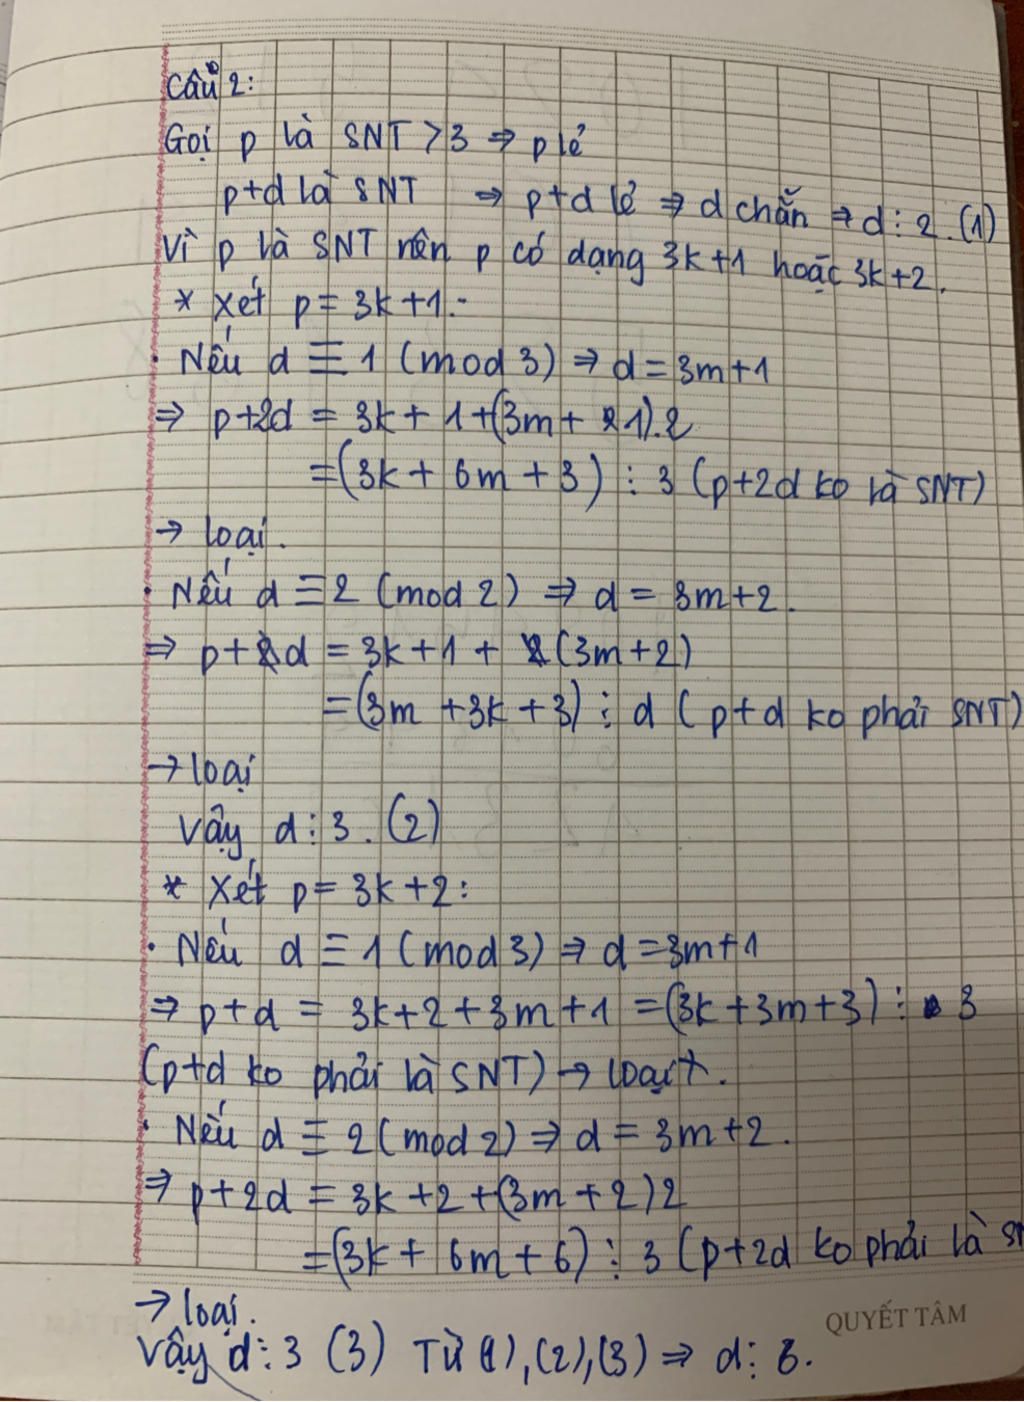 Câu 2:
Gọi p là SNT > 3 ⇒ p lẻ
p+d là SNT ⇒ p+d lẻ ⇒ d chẵn ⇒ d ⋮ 2. (1)
Vì p là SNT nên p có dạng 3k+1 hoặc 3k+2.
* Xét p = 3k+1:
• Nếu d ≡ 1 (mod 3) ⇒ d = 3m+1
⇒ p+2d = 3k + 1 + (3m + 1).2
= (3k + 6m + 3) ⋮ 3 (p+2d ko là SNT)
→ loại.
• Nếu d ≡ 2 (mod 2) ⇒ d = 3m+2.
⇒ p+d = 3k+1 + (3m+2)
= (3m +3k +3) ⋮ d (p+d ko phải SNT)
→ loại
Vậy d ⋮ 3. (2)
* Xét p = 3k+2:
• Nếu d ≡ 1 (mod 3) ⇒ d = 3m+1
⇒ p+d = 3k+2+3m+1 = (3k+3m+3) ⋮ 3
(p+d ko phải là SNT) → loại.
• Nếu d ≡ 2 (mod 2) ⇒ d = 3m+2.
⇒ p+2d = 3k +2 +(3m +2)2
= (3k + 6m + 6) ⋮ 3 (p+2d ko phải là
→ loại.
QUYẾT TÂM
Vậy d ⋮ 3 (3) Từ (1), (2), (3) ⇒ d ⋮ 6.